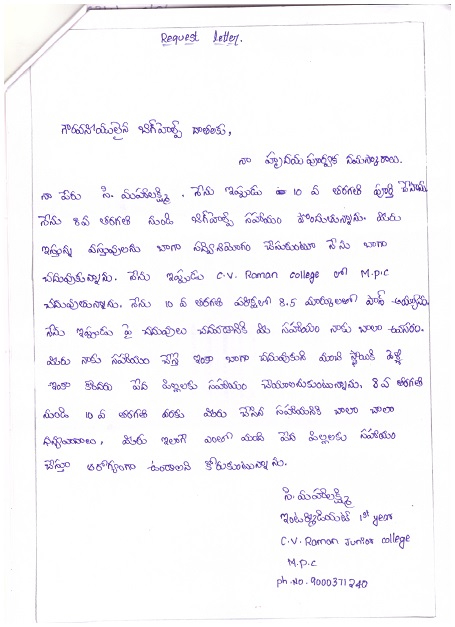 Request letter.
గౌరవనీయులైన బిగ్‌హెల్ప్ దాతలకు,
నా హృదయ పూర్వక నమస్కారాలు.
నా పేరు సి. మహాలక్ష్మి . నేను ఇప్పుడు 10 వ తరగతి పూర్తి చేసాను
నేను 8వ తరగతి నుండి బిగ్‌హెల్ప్ సహాయం పొందుతున్నాను. మీరు
ఇస్తున్న వస్తువులను బాగా సద్వినియోగం చేసుకుంటూ నేను బాగా
చదువుకున్నాను. నేను ఇప్పుడు C.V. Raman college లో M.p.c
చదువుతున్నాను. నేను 10 వ తరగతి పరీక్షలో 8.5 మార్కులతో పాస్ అయ్యాను.
నేను ఇప్పుడు పై చదువులు చదవడానికి మీ సహాయం నాకు చాలా అవసరం.
మీరు నాకు సహాయం చేస్తే ఇంకా బాగా చదువుకుని మంచి స్థాయికి వెళ్లి
ఇంకా కొందరు పేద పిల్లలకు సహాయం చేయాలనుకుంటున్నాను. 8వ తరగతి
నుండి 10 వ తరగతి వరకు మీరు చేసిన సహాయానికి చాలా చాలా
ధన్యవాదాలు, మీరు ఇలాగే ఎంతో మంది పేద పిల్లలకు సహాయం
చేస్తూ ఆరోగ్యంగా ఉండాలని కోరుకుంటున్నాను.
సి. మహాలక్ష్మి
ఇంటర్మీడియట్ 1st year
C.V. Raman Junior college
M.p.c
ph.no. 9000371240